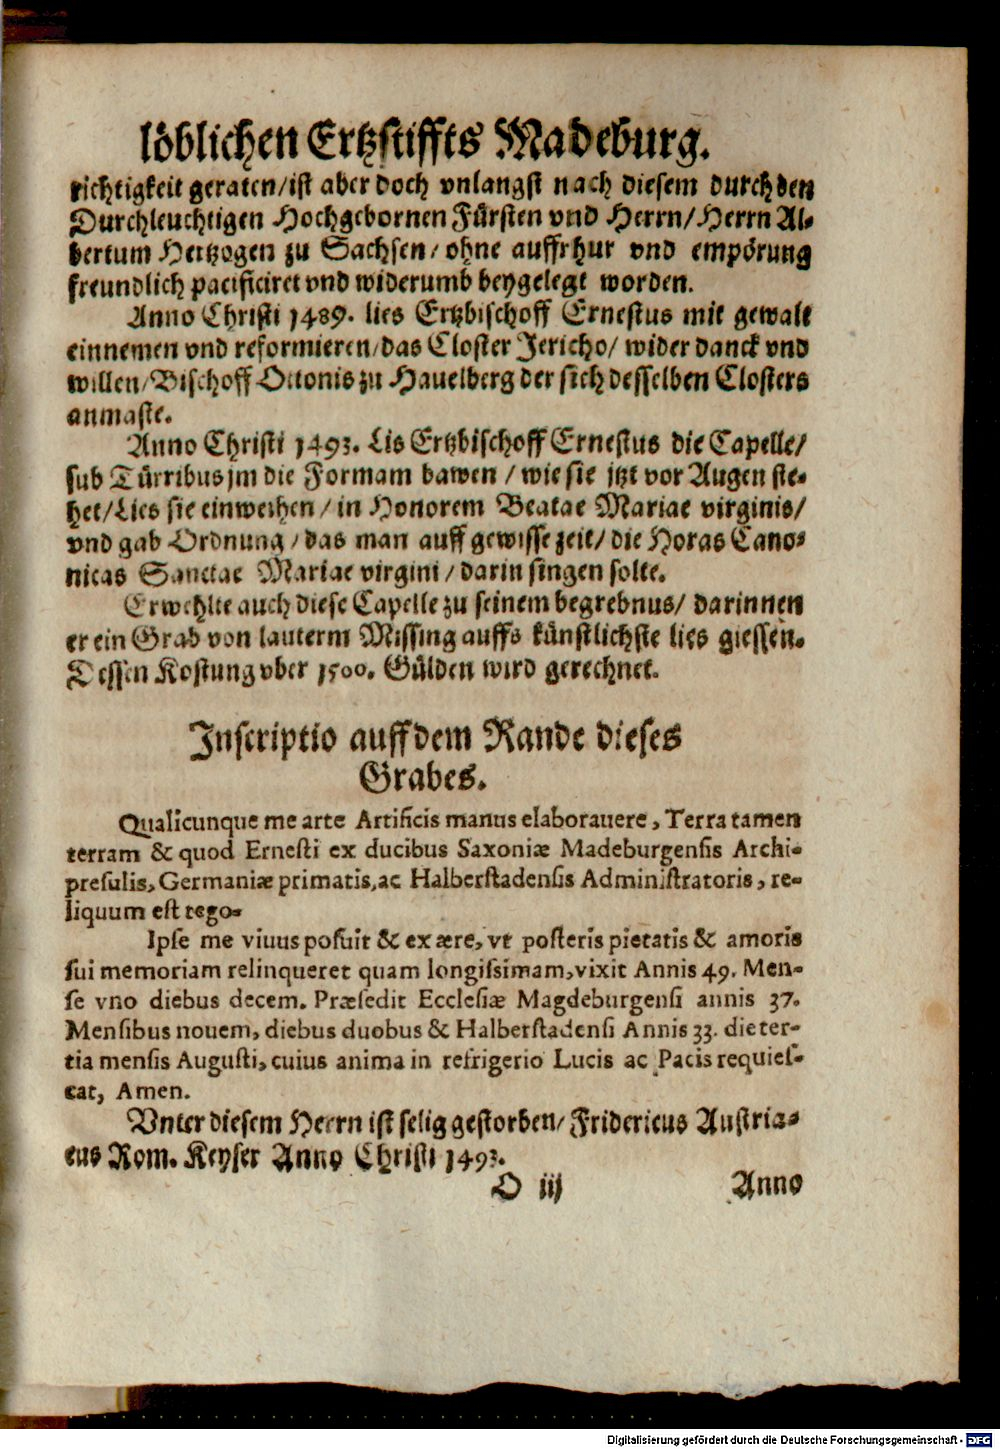 löblichen Ertzstiffts Madeburg.
richtigkeit geraten/ist aber doch vnlangst nach diesem durch den
Durchleuchtigen Hochgebornen Fürsten vnd Herrn/Herrn Al-
bertum Hertzogen zu Sachsen/ohne auffrhur vnd empörung
freundlich pacificiret vnd widerumb beygelegt worden.
Anno Christi 1489. lies Ertzbischoff Ernestus mit gewalt
einnemen vnd reformieren/das Closter Jericho/wider danck vnd
willen/Bischoff Ottonis zu Hauelberg der sich desselben Closters
anmaste.
Anno Christi 1493. Lis Ertzbischoff Ernestus die Capelle/
sub Türribus jm die Formam bawen/wie sie jtzt vor Augen ste-
het/Lies sie einweihen/in Honorem Beatae Mariae virginis/
vnd gab Ordnung/das man auff gewisse zeit/die Horas Cano-
nicas Sanctae Mariae virgini/darin singen solte.
Erwehlte auch diese Capelle zu seinem begrebnus/darinnen
er ein Grab von lauterm Missing auffs künstlichste lies giessen.
Dessen Kostung vber 1500. Gülden wird gerechnet.
Inscriptio auff dem Rande dieses
Grabes.
Qualicunque me arte Artificis manus elaborauere, Terra tamen
terram & quod Ernesti ex ducibus Saxoniæ Madeburgensis Archi-
presulis, Germaniæ primatis, ac Halberstadensis Administratoris, re-
liquum est tego-
Ipse me viuus posuit & ex ære, vt posteris pietatis & amoris
sui memoriam relinqueret quam longissimam, vixit Annis 49. Men-
se vno diebus decem. Præsedit Ecclesiæ Magdeburgensi annis 37.
Mensibus nouem, diebus duobus & Halberstadensi Annis 33. die ter-
tia mensis Augusti, cuius anima in refrigerio Lucis ac Pacis requies-
cat, Amen.
Vnter diesem Herrn ist selig gestorben/Fridericus Austria-
cus Rom. Keyser Anno Christi 1493.
O iij Anno
Digitalisierung gefördert durch die Deutsche Forschungsgemeinschaft - DFG